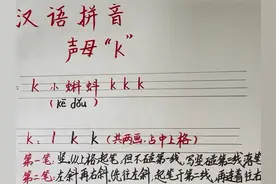 汉语拼音
声母“k”
k 小蝌蚪 k k k
(kē dǒu)
k: l k k (共两画·占中上格)
第一笔:竖,从上格起笔,但不碰第一线,写竖碰第三线落笔
第二笔:左斜再右斜,先往左斜,起笔于第二线,再连着往右